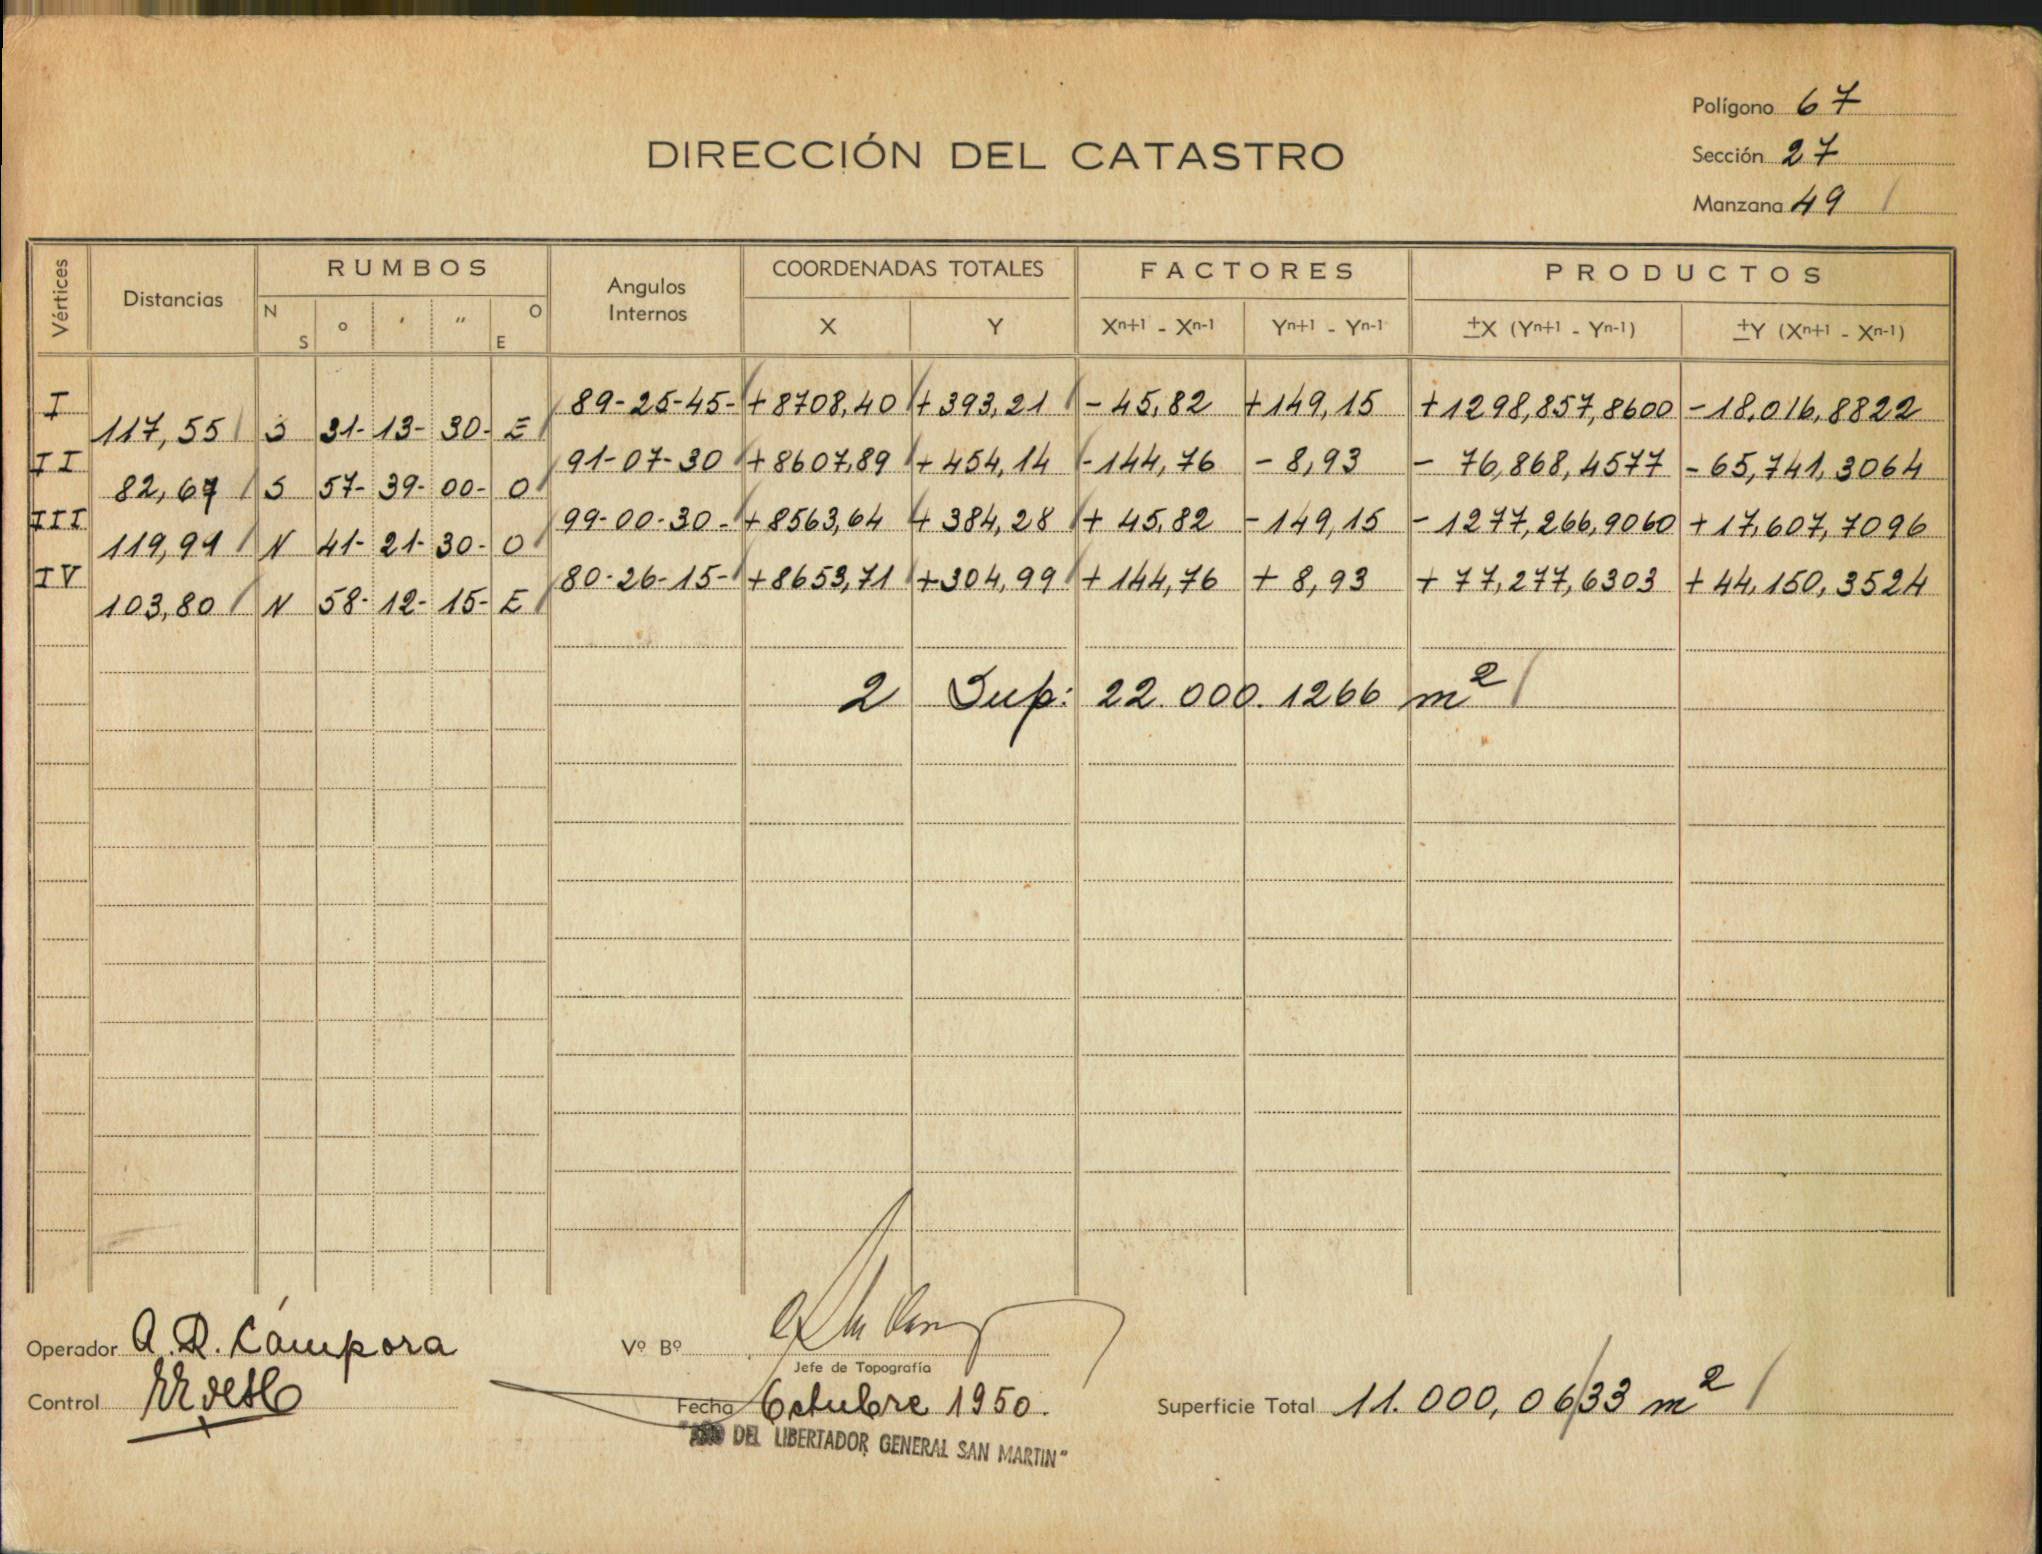 Polígono 67
DIRECCIÓN DEL CATASTRO
Sección 27
Manzana 49
Vértices Distancias RUMBOS Angulos Internos COORDENADAS TOTALES FACTORES PRODUCTOS
N S ° ' " O E X Y Xn+1 - Xn-1 Yn+1 - Yn-1 ±X (Yn+1 - Yn-1) ±Y (Xn+1 - Xn-1)
I 89-25-45- +8708,40 +393,21 -45,82 +149,15 +1298,857,8600 -18,016,8822
117,55 S 31- 13- 30- E
II 91-07-30 +8607,89 +454,14 -144,76 -8,93 - 76,868,4577 -65,741,3064
82,67 S 57- 39- 00- O
III 99-00-30- +8563,64 +384,28 +45,82 -149,15 -1277,266,9060 +17,607,7096
119,99 N 41- 21- 30- O
IV 80-26-15- +8653,71 +304,99 +144,76 +8,93 + 77,277,6303 +44,150,3524
103,80 N 58- 12- 15- E
2 Sup: 22.000.1266 m²
Operador A.R. Cámpora Vº Bº
Jefe de Topografía
Control Fecha Octubre 1950. Superficie Total 11.000,0633 m²
"AÑO DEL LIBERTADOR GENERAL SAN MARTIN"